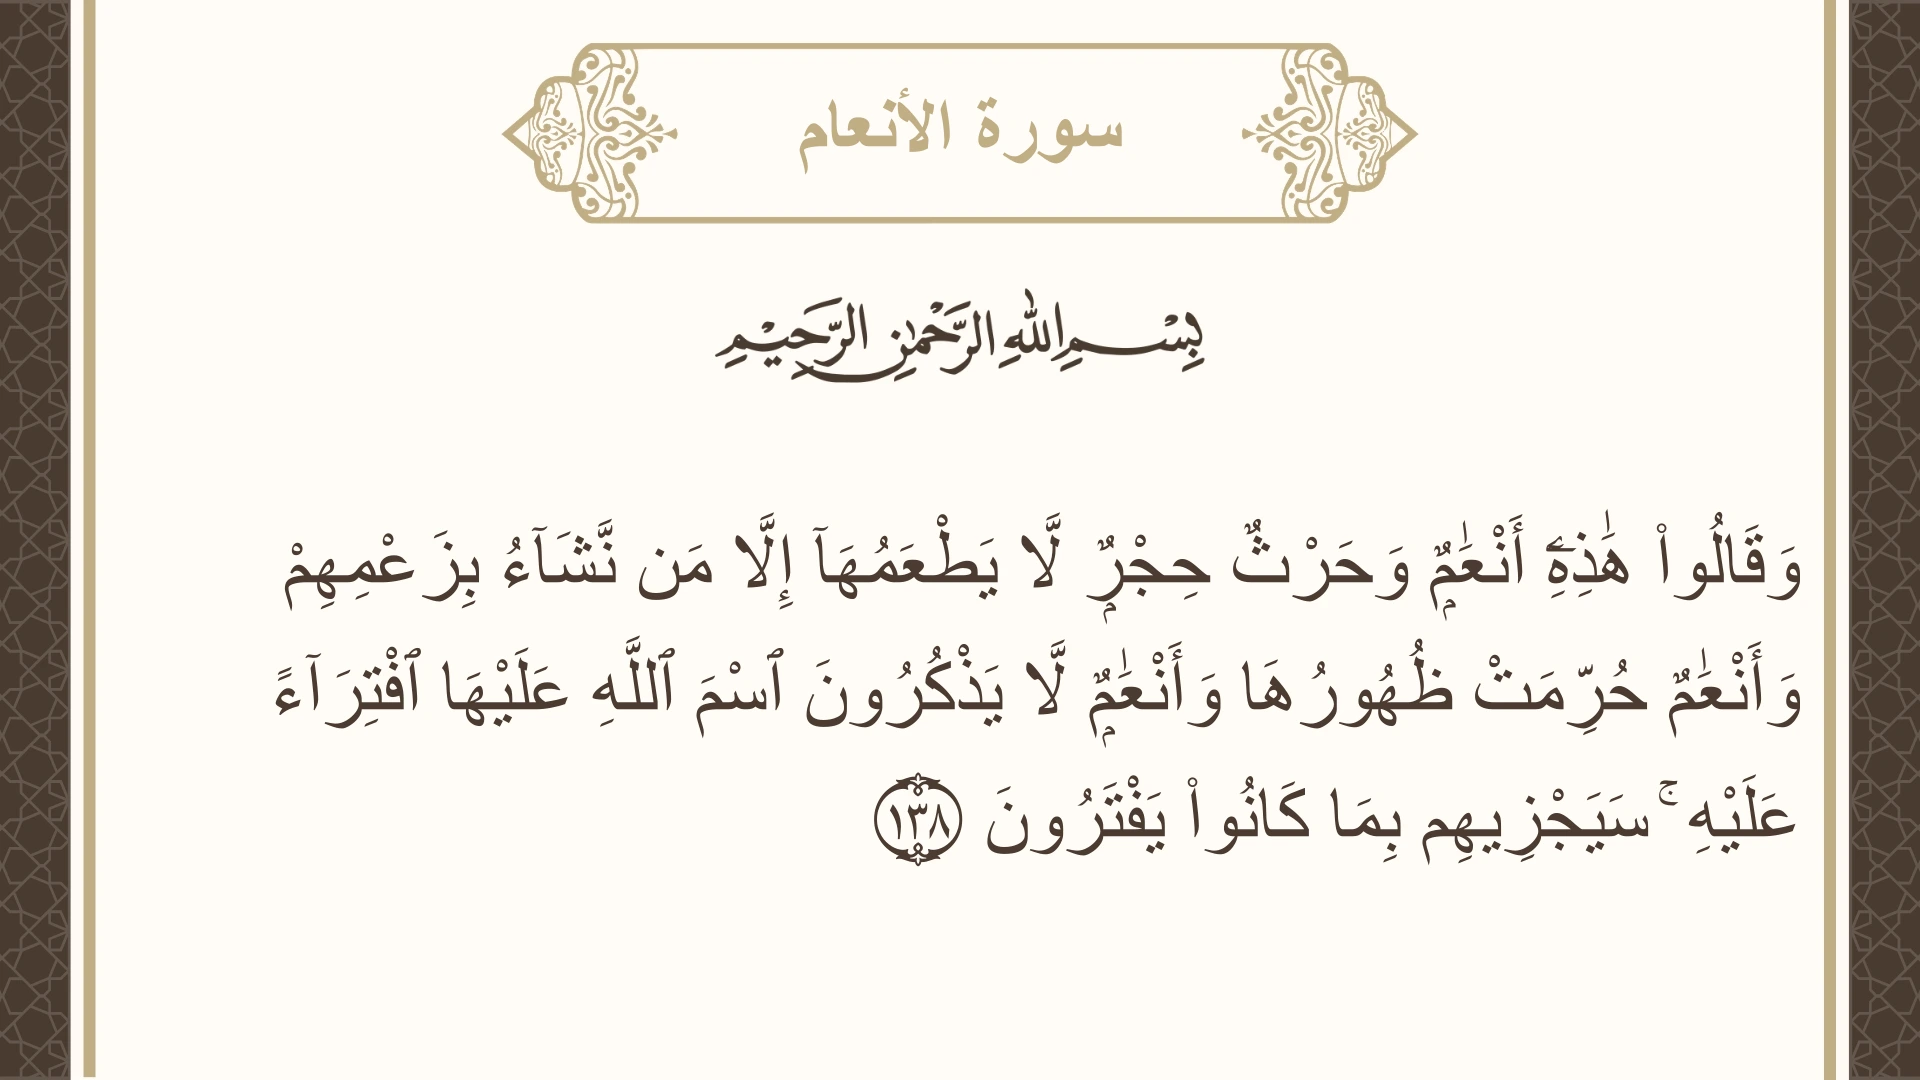 سورة الأنعام
بِسْمِ اللهِ الرَّحْمٰنِ الرَّحِيْمِ
وَقَالُوا۟ هَٰذِهِۦٓ أَنْعَٰمٌۭ وَحَرْثٌ حِجْرٌۭ لَّا يَطْعَمُهَآ إِلَّا مَن نَّشَآءُ بِزَعْمِهِمْ
وَأَنْعَٰمٌ حُرِّمَتْ ظُهُورُهَا وَأَنْعَٰمٌۭ لَّا يَذْكُرُونَ ٱسْمَ ٱللَّهِ عَلَيْهَا ٱفْتِرَآءً
عَلَيْهِ ۚ سَيَجْزِيهِم بِمَا كَانُوا۟ يَفْتَرُونَ ١٣٨